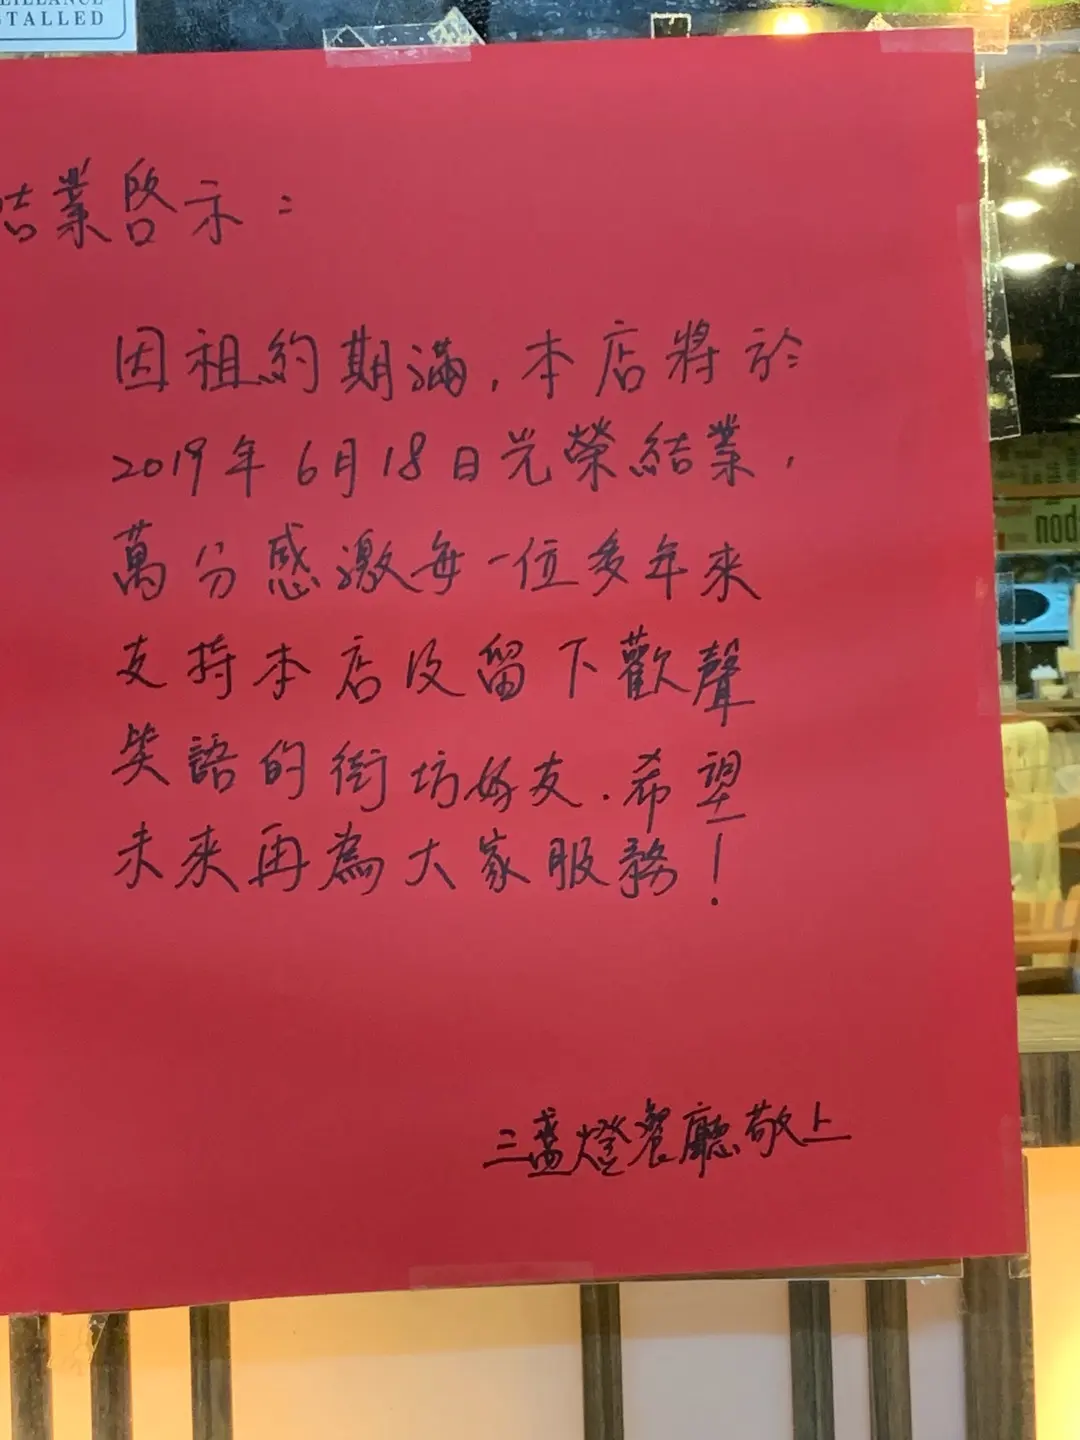 STALLED
結業啓示：
因祖約期滿，本店將於
2019年6月18日光榮結業，
萬分感激每一位多年來
支持本店及留下歡聲
笑語的街坊好友．希望
未來再為大家服務！
三盞燈餐廳敬上
nod